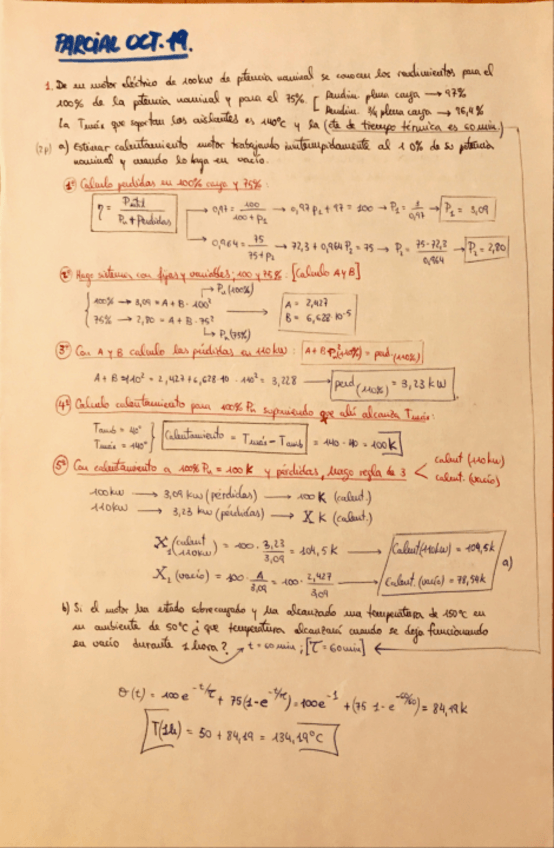 PARCIAL OCT. 19.
1. De un motor eléctrico de 100kw de potencia nominal se conocen los rendimientos para el
100% de la potencia nominal y para el 75%. [ Rendim. plena carga → 97%
Rendim. 3/4 plena carga → 96,4%
La Tmáx que soportan los aislantes es 140°C y la (cte de tiempo térmica es 60 min.)
(2p) a) Estimar calentamiento motor trabajando ininterrumpidamente al 110% de su potencia
nominal y cuando lo haga en vacío.
1º Cálculo pérdidas en 100% carga y 75%:
η = Pútil / Pu + Pérdidas → 0,97 = 100 / 100 + P1 → 0,97 P1 + 97 = 100 → P1 = 3 / 0,97 → P1 = 3,09
→ 0,964 = 75 / 75 + P2 → 72,3 + 0,964 P2 = 75 → P2 = 75 - 72,3 / 0,964 → P2 = 2,80
2º Hago sistema con fijas y variables; 100 y 75%. [Calculo A y B]
→ Pu (100%)
100% → 3,09 = A + B · 100²
75% → 2,80 = A + B · 75²
→ Pu (75%)
A = 2,427
B = 6,628·10⁻⁵
3º Con A y B calculo las pérdidas en 110 kw: A + B · P²(110%) = perd (110%)
A + B · 110² = 2,427 + 6,628·10⁻⁵ · 110² = 3,228 → perd (110%) = 3,23 kW
4º Calculo calentamiento para 100% Pu suponiendo que ahí alcanza Tmáx:
Tamb = 40°
Tmáx = 140°
Calentamiento = Tmáx - Tamb = 140 - 40 = 100 K
5º Con calentamiento a 100% Pu = 100 K y pérdidas, hago regla de 3 < calent (110 kw)
calent. (vacío)
100 kw → 3,09 kw (pérdidas) → 100 K (calent.)
110 kw → 3,23 kw (pérdidas) → X K (calent.)
X (calent 110kw) = 100 · 3,23 / 3,09 = 104,5 K → Calent (110kw) = 104,5 K
X1 (vacío) = 100 · A / 3,09 = 100 · 2,427 / 3,09 → Calent. (vacío) = 78,54 K
a)
b) Si el motor ha estado sobrecargado y ha alcanzado una temperatura de 150°C en
un ambiente de 50°C ¿ que temperatura alcanzará cuando se deja funcionando
en vacío durante 1 hora? → t = 60 min ; [τ = 60 min]
θ (t) = 100 e^-t/τ + 75 (1 - e^-t/τ) = 100 e⁻¹ + (75 1 - e^-60/60) = 84,19 K
T(1h) = 50 + 84,19 = 134,19°C